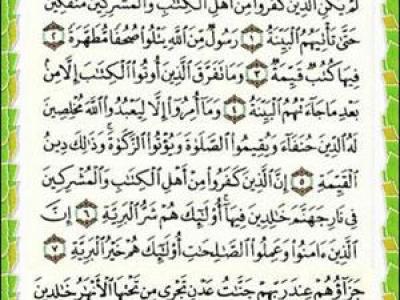 لَمْ يَكُنِ ٱلَّذِينَ كَفَرُوا۟ مِنْ أَهْلِ ٱلْكِتَٰبِ وَٱلْمُشْرِكِينَ مُنفَكِّينَ
حَتَّىٰ تَأْتِيَهُمُ ٱلْبَيِّنَةُ ١ رَسُولٌ مِّنَ ٱللَّهِ يَتْلُوا۟ صُحُفًا مُّطَهَّرَةً ٢
فِيهَا كُتُبٌ قَيِّمَةٌ ٣ وَمَا تَفَرَّقَ ٱلَّذِينَ أُوتُوا۟ ٱلْكِتَٰبَ إِلَّا مِنۢ
بَعْدِ مَا جَآءَتْهُمُ ٱلْبَيِّنَةُ ٤ وَمَآ أُمِرُوٓا۟ إِلَّا لِيَعْبُدُوا۟ ٱللَّهَ مُخْلِصِينَ
لَهُ ٱلدِّينَ حُنَفَآءَ وَيُقِيمُوا۟ ٱلصَّلَوٰةَ وَيُؤْتُوا۟ ٱلزَّكَوٰةَ ۚ وَذَٰلِكَ دِينُ
ٱلْقَيِّمَةِ ٥ إِنَّ ٱلَّذِينَ كَفَرُوا۟ مِنْ أَهْلِ ٱلْكِتَٰبِ وَٱلْمُشْرِكِينَ
فِى نَارِ جَهَنَّمَ خَٰلِدِينَ فِيهَآ ۚ أُو۟لَٰٓئِكَ هُمْ شَرُّ ٱلْبَرِيَّةِ ٦ إِنَّ
ٱلَّذِينَ ءَامَنُوا۟ وَعَمِلُوا۟ ٱلصَّٰلِحَٰتِ أُو۟لَٰٓئِكَ هُمْ خَيْرُ ٱلْبَرِيَّةِ ٧
جَزَآؤُهُمْ عِندَ رَبِّهِمْ جَنَّٰتُ عَدْنٍ تَجْرِى مِن تَحْتِهَا ٱلْأَنْهَٰرُ خَٰلِدِينَ